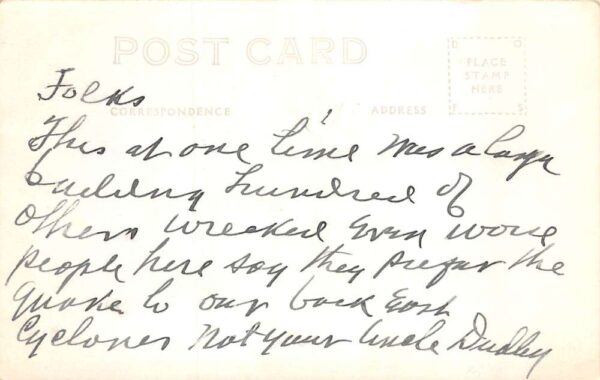 POST CARD
D O
PLACE
STAMP
HERE
F S
CORRESPONDENCE
ADDRESS
Folks
This at one time was a large
building hundred of
others wrecked Even worse
people here say they prefer the
Quake to our back East
Cyclones Not your Uncle Dudley